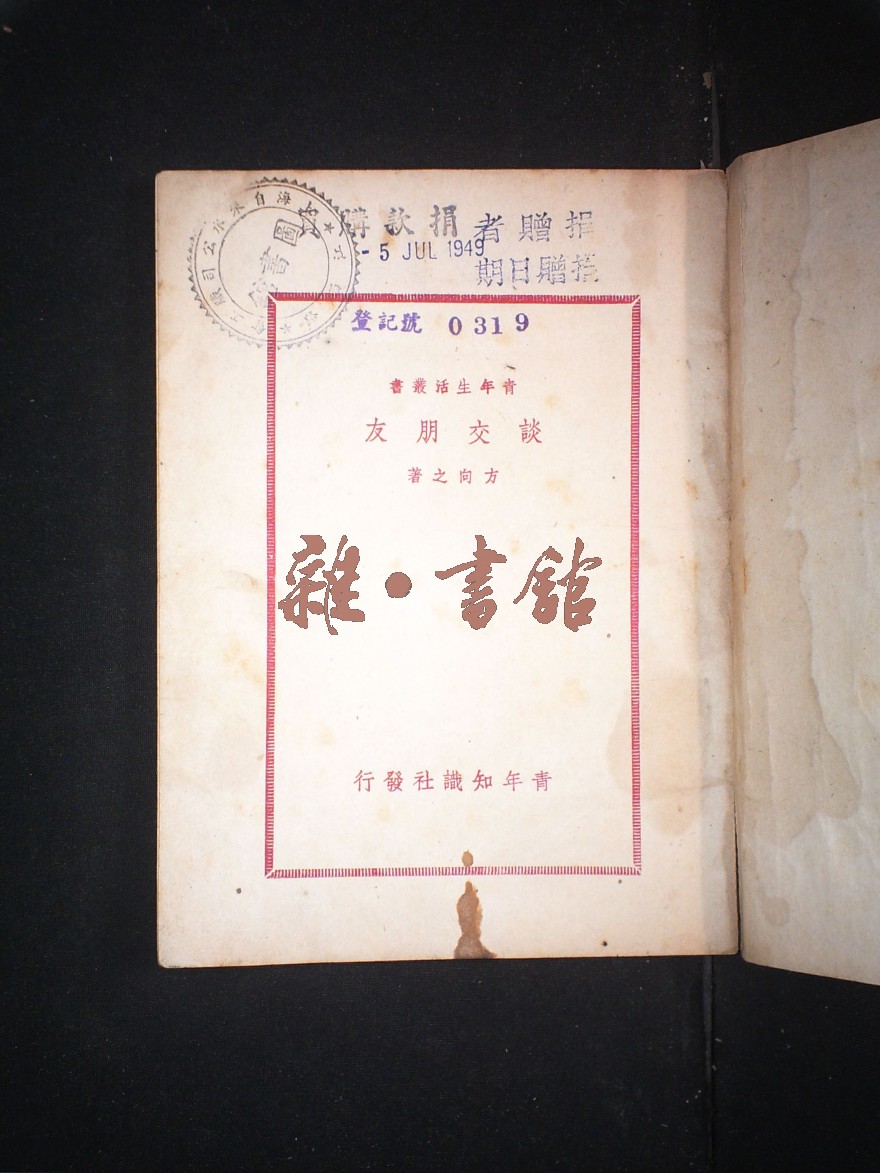 捐贈者 捐款購
5 JUL 1949
捐贈日期
圖書館
登記號 0319
青年生活叢書
談交朋友
方向之著
雜·書館
青年知識社發行